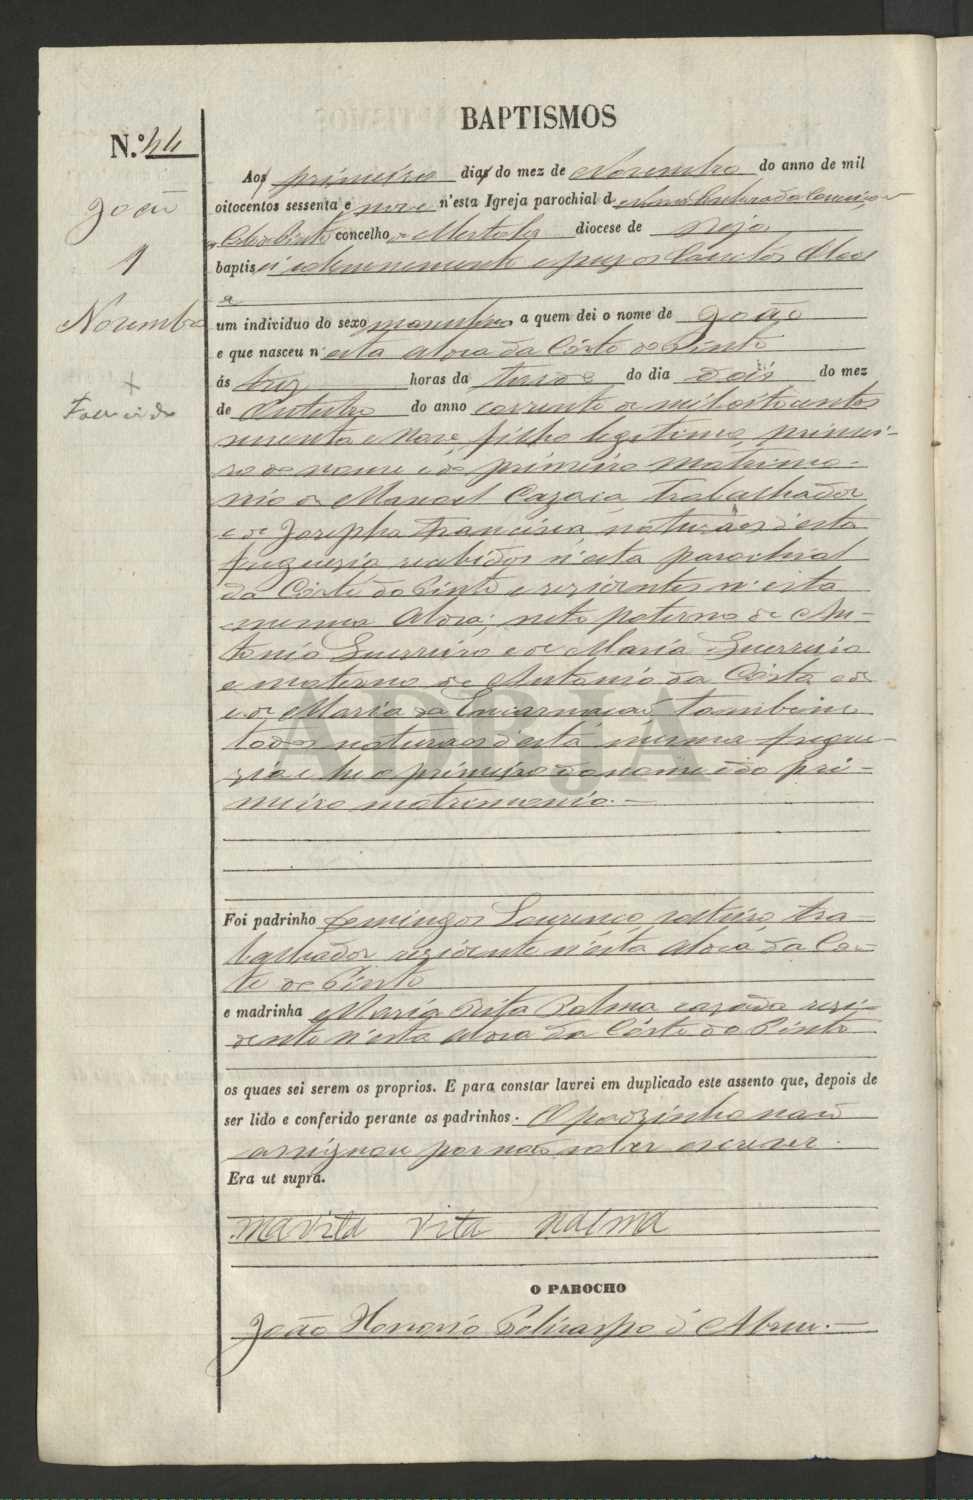 BAPTISMOS
N.º 44
João
1
Novembro
+
Fallecido
Aos primeiro dias do mez de Novembro do anno de mil
oitocentos sessenta e nove n'esta Igreja parochial de Nossa Senhora da Conceição
da Corte do Pinto concelho de Mertola diocese de Beja
baptisei solemnemente e puz os Santos Oleos
a
um individuo do sexo masculino a quem dei o nome de João
e que nasceu n'esta aldea da Côrte do Pinto
ás trez horas da tarde do dia dois do mez
de Outubro do anno corrente de mil oitocentos
sessenta e nove, filho legitimo, primei-
ro do nome e do primeiro matrimo-
nio de Manoel Cazaca, trabalhador
e de Josepha Francisca, naturaes d'esta
freguezia recebidos n'esta parochial
da Côrte do Pinto e rezidentes n'esta
mesma aldea; neto paterno de An-
tonio Guerreiro e de Maria Guerreira
e materno de Antonio da Costa e de
e de Maria da Encarnação tambem
todos naturaes d'esta mesma fregue-
zia e he o primeiro do nome e do pri-
meiro matrimonio.—
Foi padrinho Domingos Lourenço, solteiro, tra
balhador rezidente n'esta aldea da Cor-
te do Pinto
e madrinha Maria Rita Palma cazada rezi-
dente n'esta aldea da Côrte do Pinto
os quaes sei serem os proprios. E para constar lavrei em duplicado este assento que, depois de
ser lido e conferido perante os padrinhos. O padrinho não
assignou por não saber escrever.
Era ut supra.
maria rita palma
O PAROCHO
João Honorio Policarpo d'Abreu.—
ADBJA